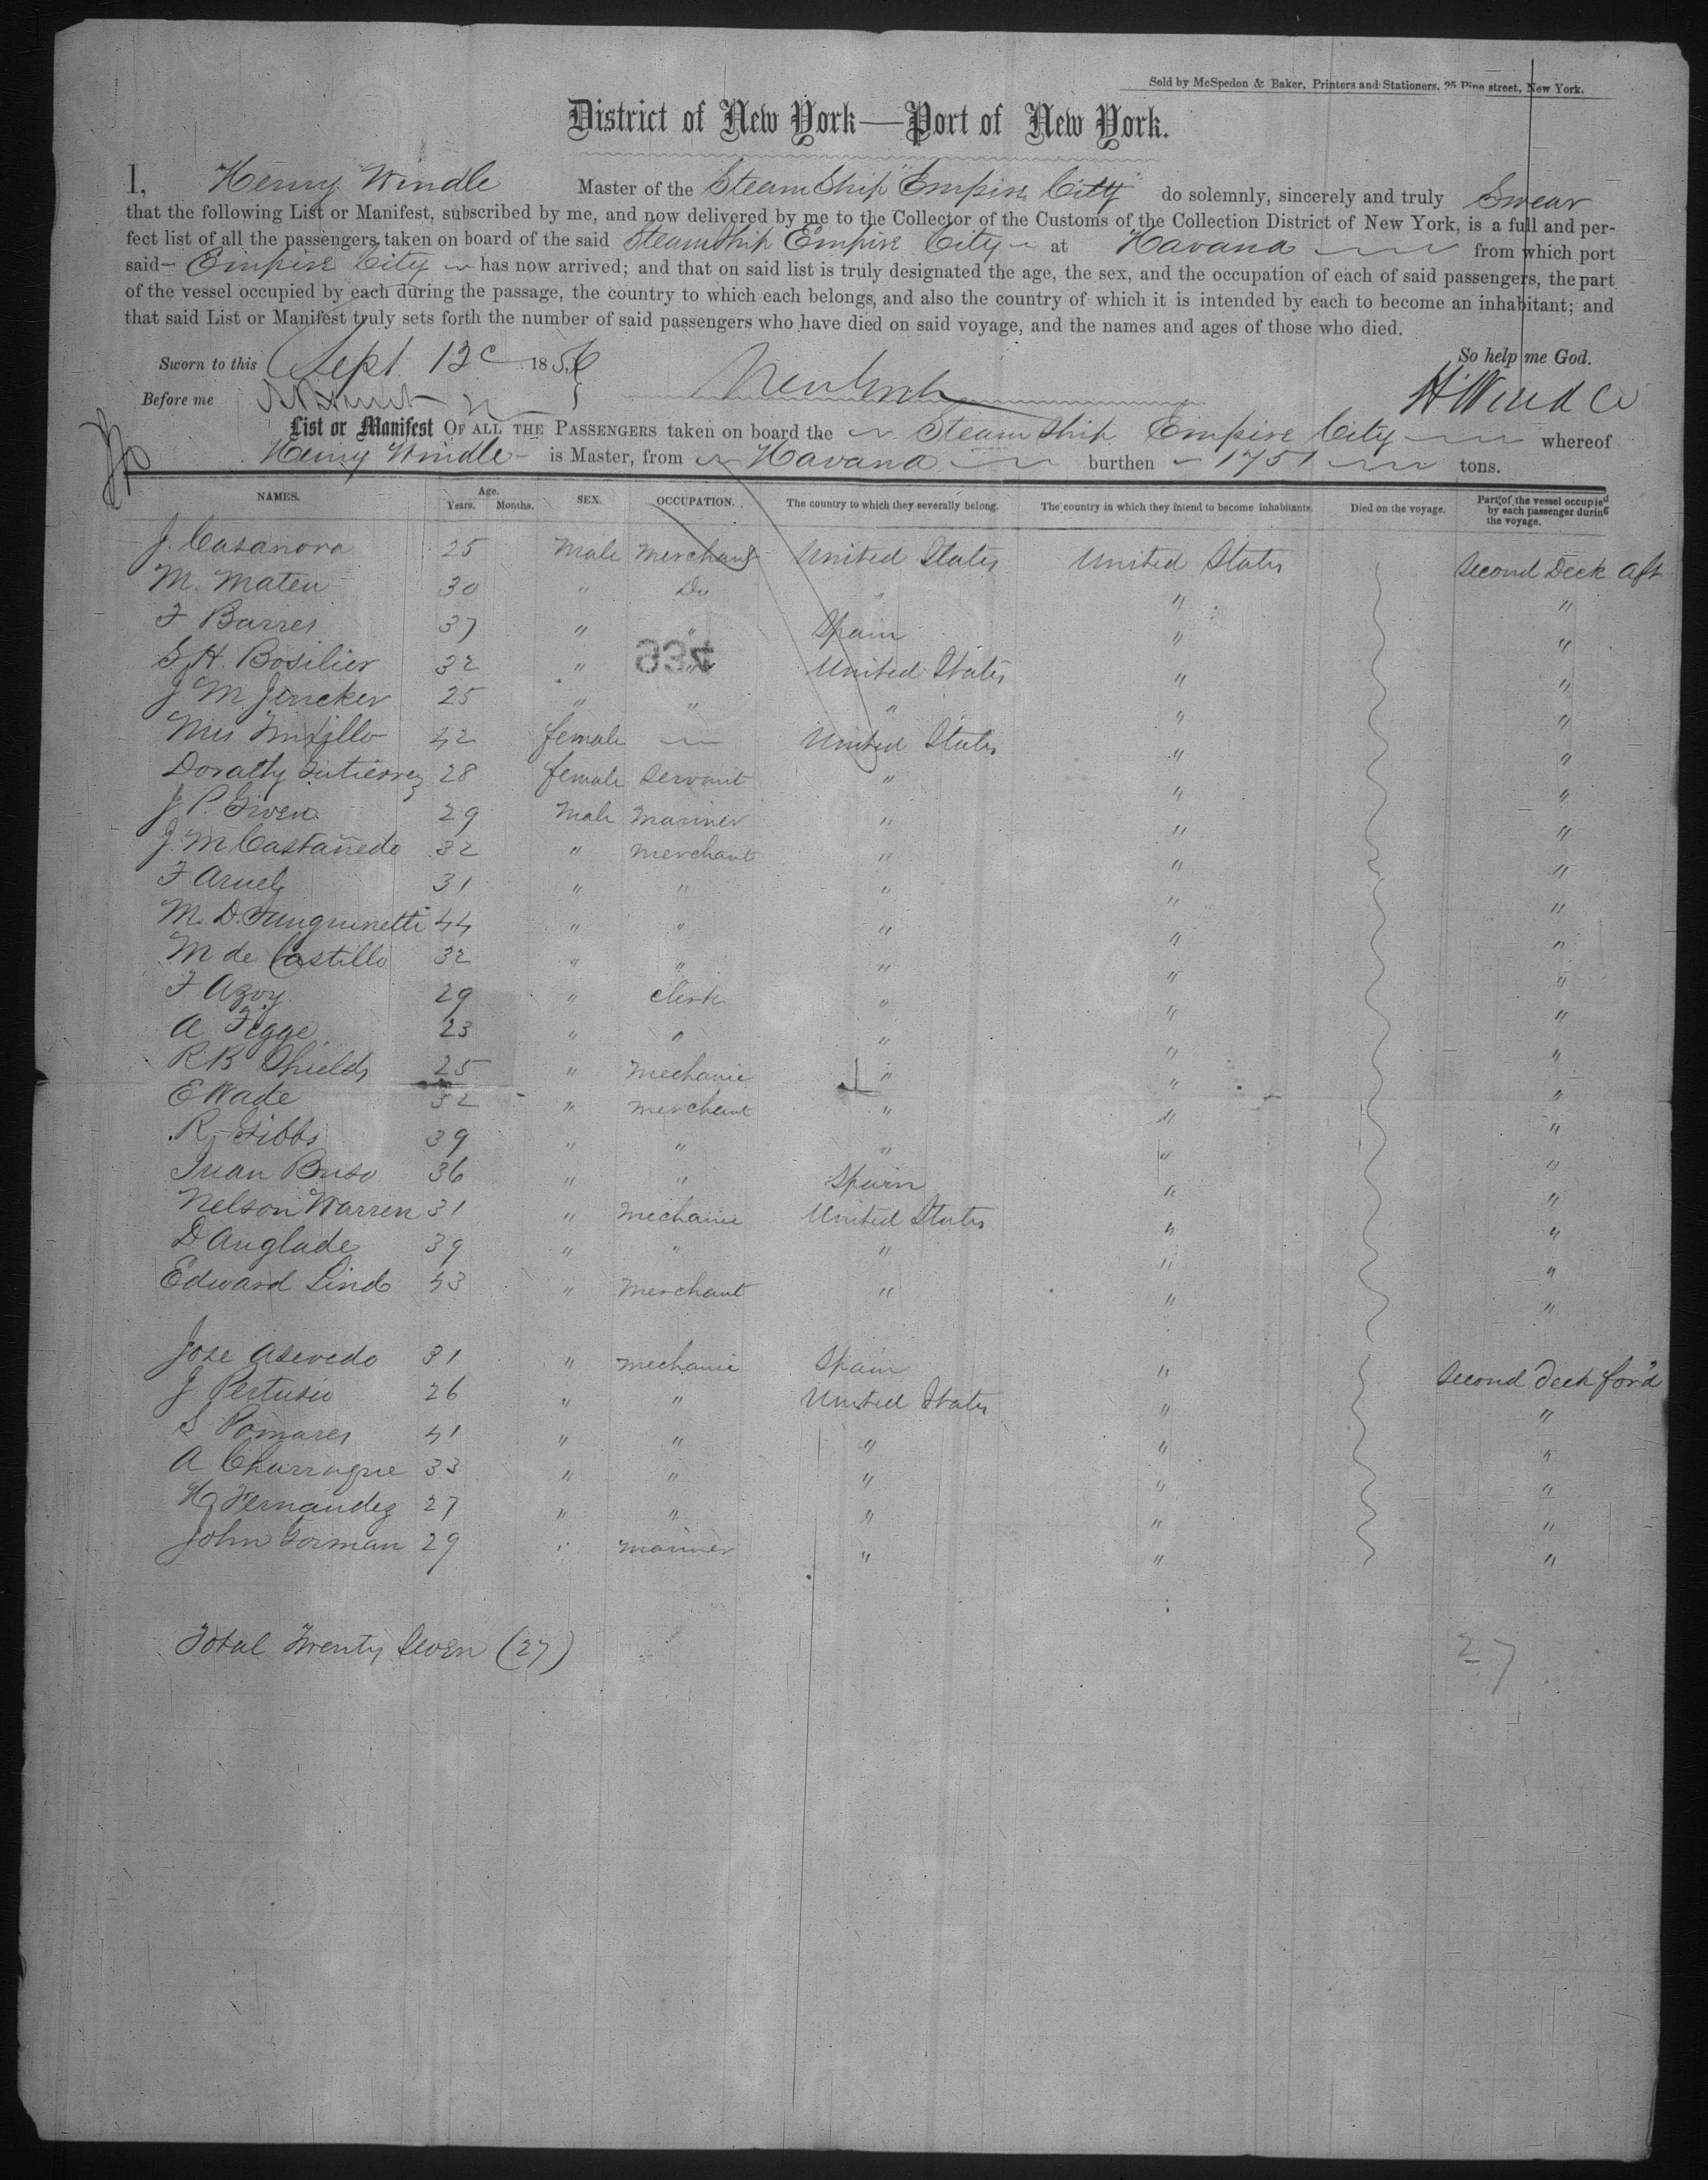 Sold by McSpedon & Baker, Printers and Stationers, 25 Pine street, New York.
District of New York—Port of New York.
I, Henry Windle Master of the Steam Ship "Empire City" do solemnly, sincerely and truly Swear
that the following List or Manifest, subscribed by me, and now delivered by me to the Collector of the Customs of the Collection District of New York, is a full and per-
fect list of all the passengers taken on board of the said Steam Ship Empire City at Havana from which port
said Empire City has now arrived; and that on said list is truly designated the age, the sex, and the occupation of each of said passengers, the part
of the vessel occupied by each during the passage, the country to which each belongs, and also the country of which it is intended by each to become an inhabitant; and
that said List or Manifest truly sets forth the number of said passengers who have died on said voyage, and the names and ages of those who died.
Sworn to this Sept 13 1856 So help me God.
Before me H Windle
List or Manifest OF ALL THE PASSENGERS taken on board the Steam Ship Empire City whereof
Henry Windle is Master, from Havana burthen 1751 tons.
NAMES. Age. Years. Months. SEX. OCCUPATION. The country to which they severally belong. The country in which they intend to become inhabitants. Died on the voyage. Part of the vessel occupied by each passenger during the voyage.
J. Casanova 25 Male Merchant United States United States Second Deck Aft
M. Mateu 30 " Do " " "
F Barres 37 " " Spain " "
S H. Bosilier 32 " " United States " "
J M Jencker 25 " " " " "
Mrs 42 female — United States " "
Doratty Gutierrez 28 female Servant " " "
J P. Given 29 Male Mariner " " "
J. M Castañedo 32 " Merchant " " "
F 31 " " " " "
M. D. 44 " " " " "
M de Castillo 32 " " " " "
F Azoy 29 " Clerk " " "
A Figge 23 " " " " "
R B Shields 25 " Mechanic " " "
E Wade 32 " Merchant " " "
R Gibbs 39 " " " " "
Juan Buso 36 " " Spain " "
Nelson Warren 31 " Mechanic United States " "
D Anglade 39 " " " " "
Edward Lind 43 " Merchant " " "
Jose Asevedo 31 " Mechanic Spain " Second Deck for'd
J Pertusio 26 " " United States " "
S Pomares 41 " " " " "
A 33 " " " " "
H Fernandez 27 " " " " "
John Gorman 29 " Mariner " " "
Total Twenty Seven (27) 27